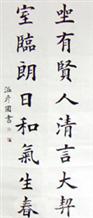 坐有賢人清言大契
室臨朗日和氣生春
國書